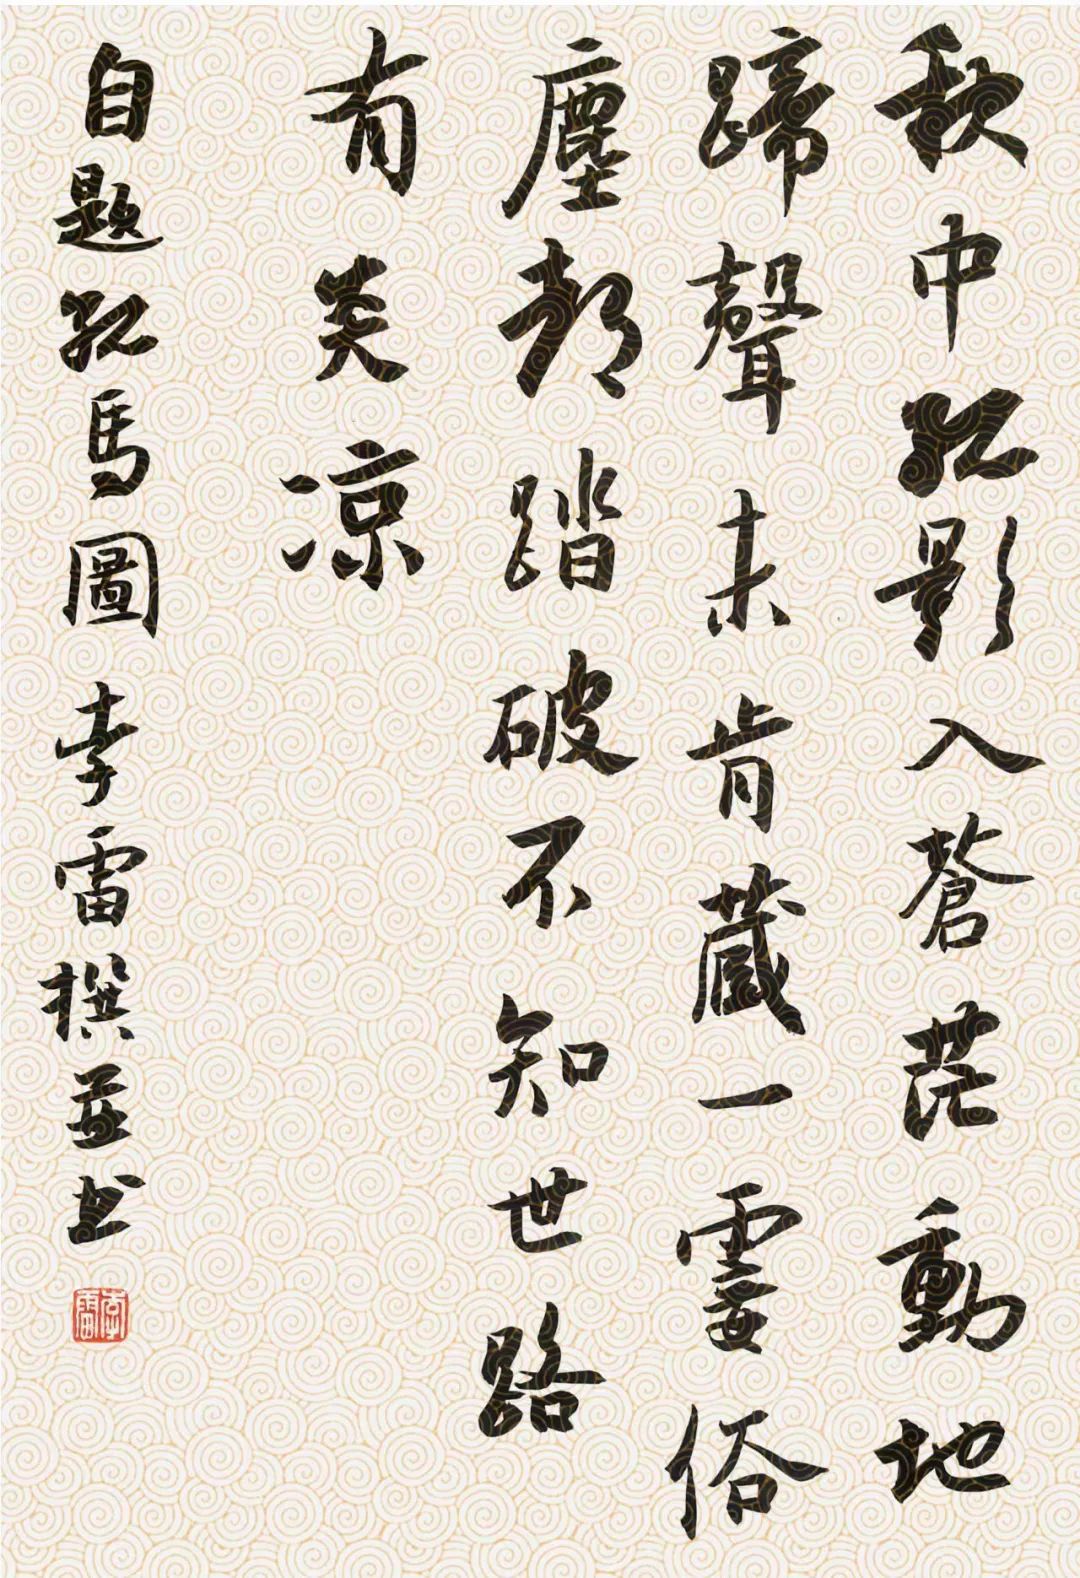 秋中孤影入蒼茫動地
蹄聲未肯藏一霎俗
塵都踏破不知世路
有炎凉
自題孤馬圖 李雷撰並书
李雷